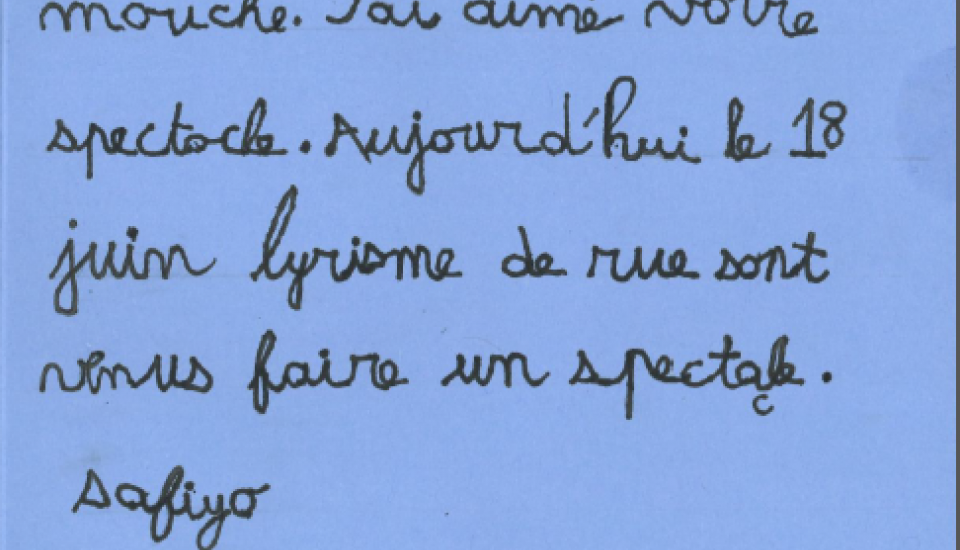 mouche. J'ai aimé votre
spectacle. Aujourd'hui le 18
juin lyrisme de rue sont
venus faire un spectacle.
Safiya